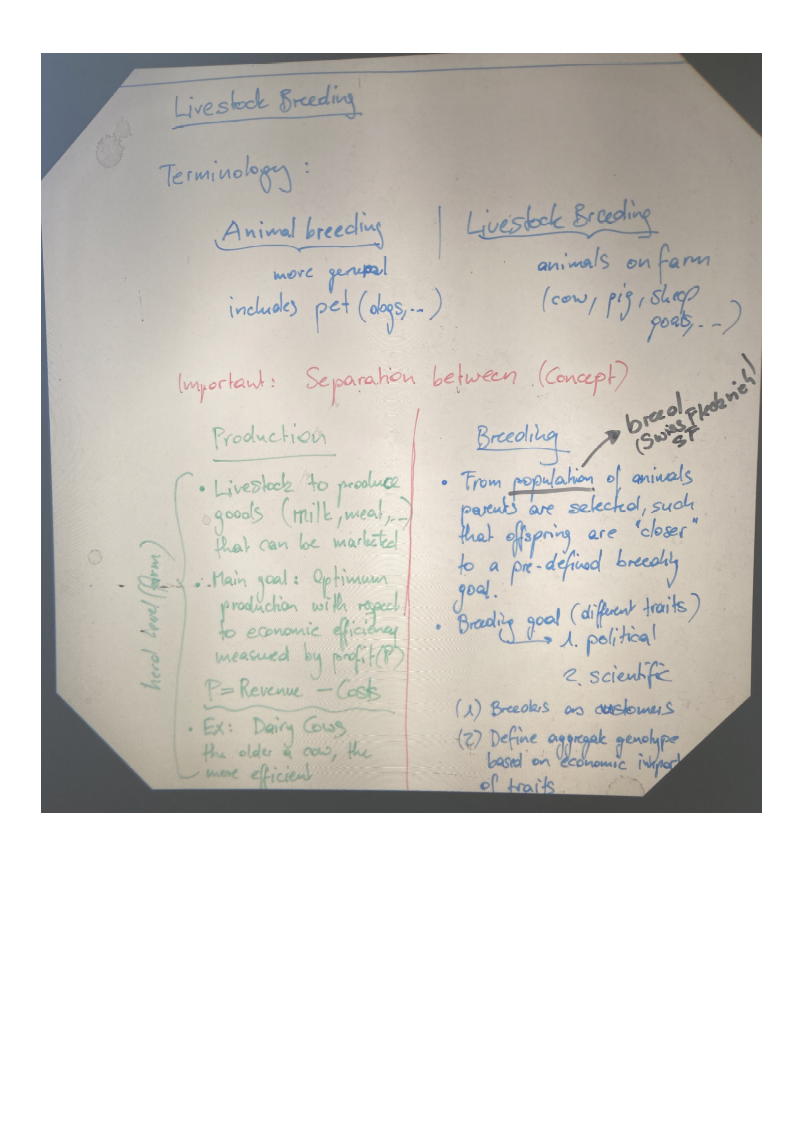 Livestock Breeding
Terminology :
Animal breeding
more general
includes pet (dogs, ...)
Livestock Breeding
animals on farm
(cow, pig, sheep
goats, ...)
Important: Separation between (Concept)
Production
herd level (farm)
• Livestock to produce
goods (milk, meat, ...)
that can be marketed
• Main goal: Optimum
production with respect
to economic efficiency
measured by profit (P)
P = Revenue - Costs
• Ex: Dairy Cows
the older a cow, the
more efficient
Breeding
breed
(Swiss Fleckvieh)
SF
• From population of animals
parents are selected, such
that offspring are "closer"
to a pre-defined breeding
goal.
• Breeding goal (different traits)
1. political
2. scientific
(1) Breeders as customers
(2) Define aggregate genotype
based on economic import
of traits